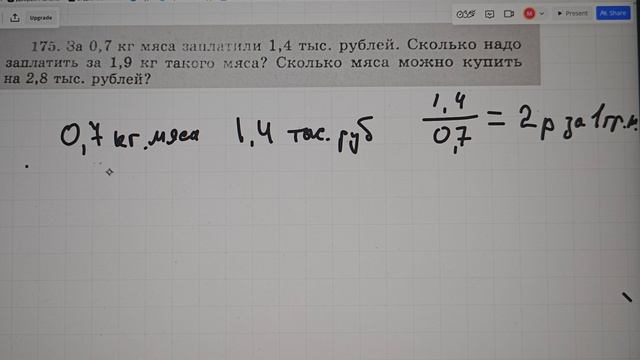 Upgrade
M
Present
Share
175. За 0,7 кг мяса заплатили 1,4 тыс. рублей. Сколько надо
заплатить за 1,9 кг такого мяса? Сколько мяса можно купить
на 2,8 тыс. рублей?
0,7 кг. мяса 1,4 тыс. руб 1,4/0,7 = 2 р за 1